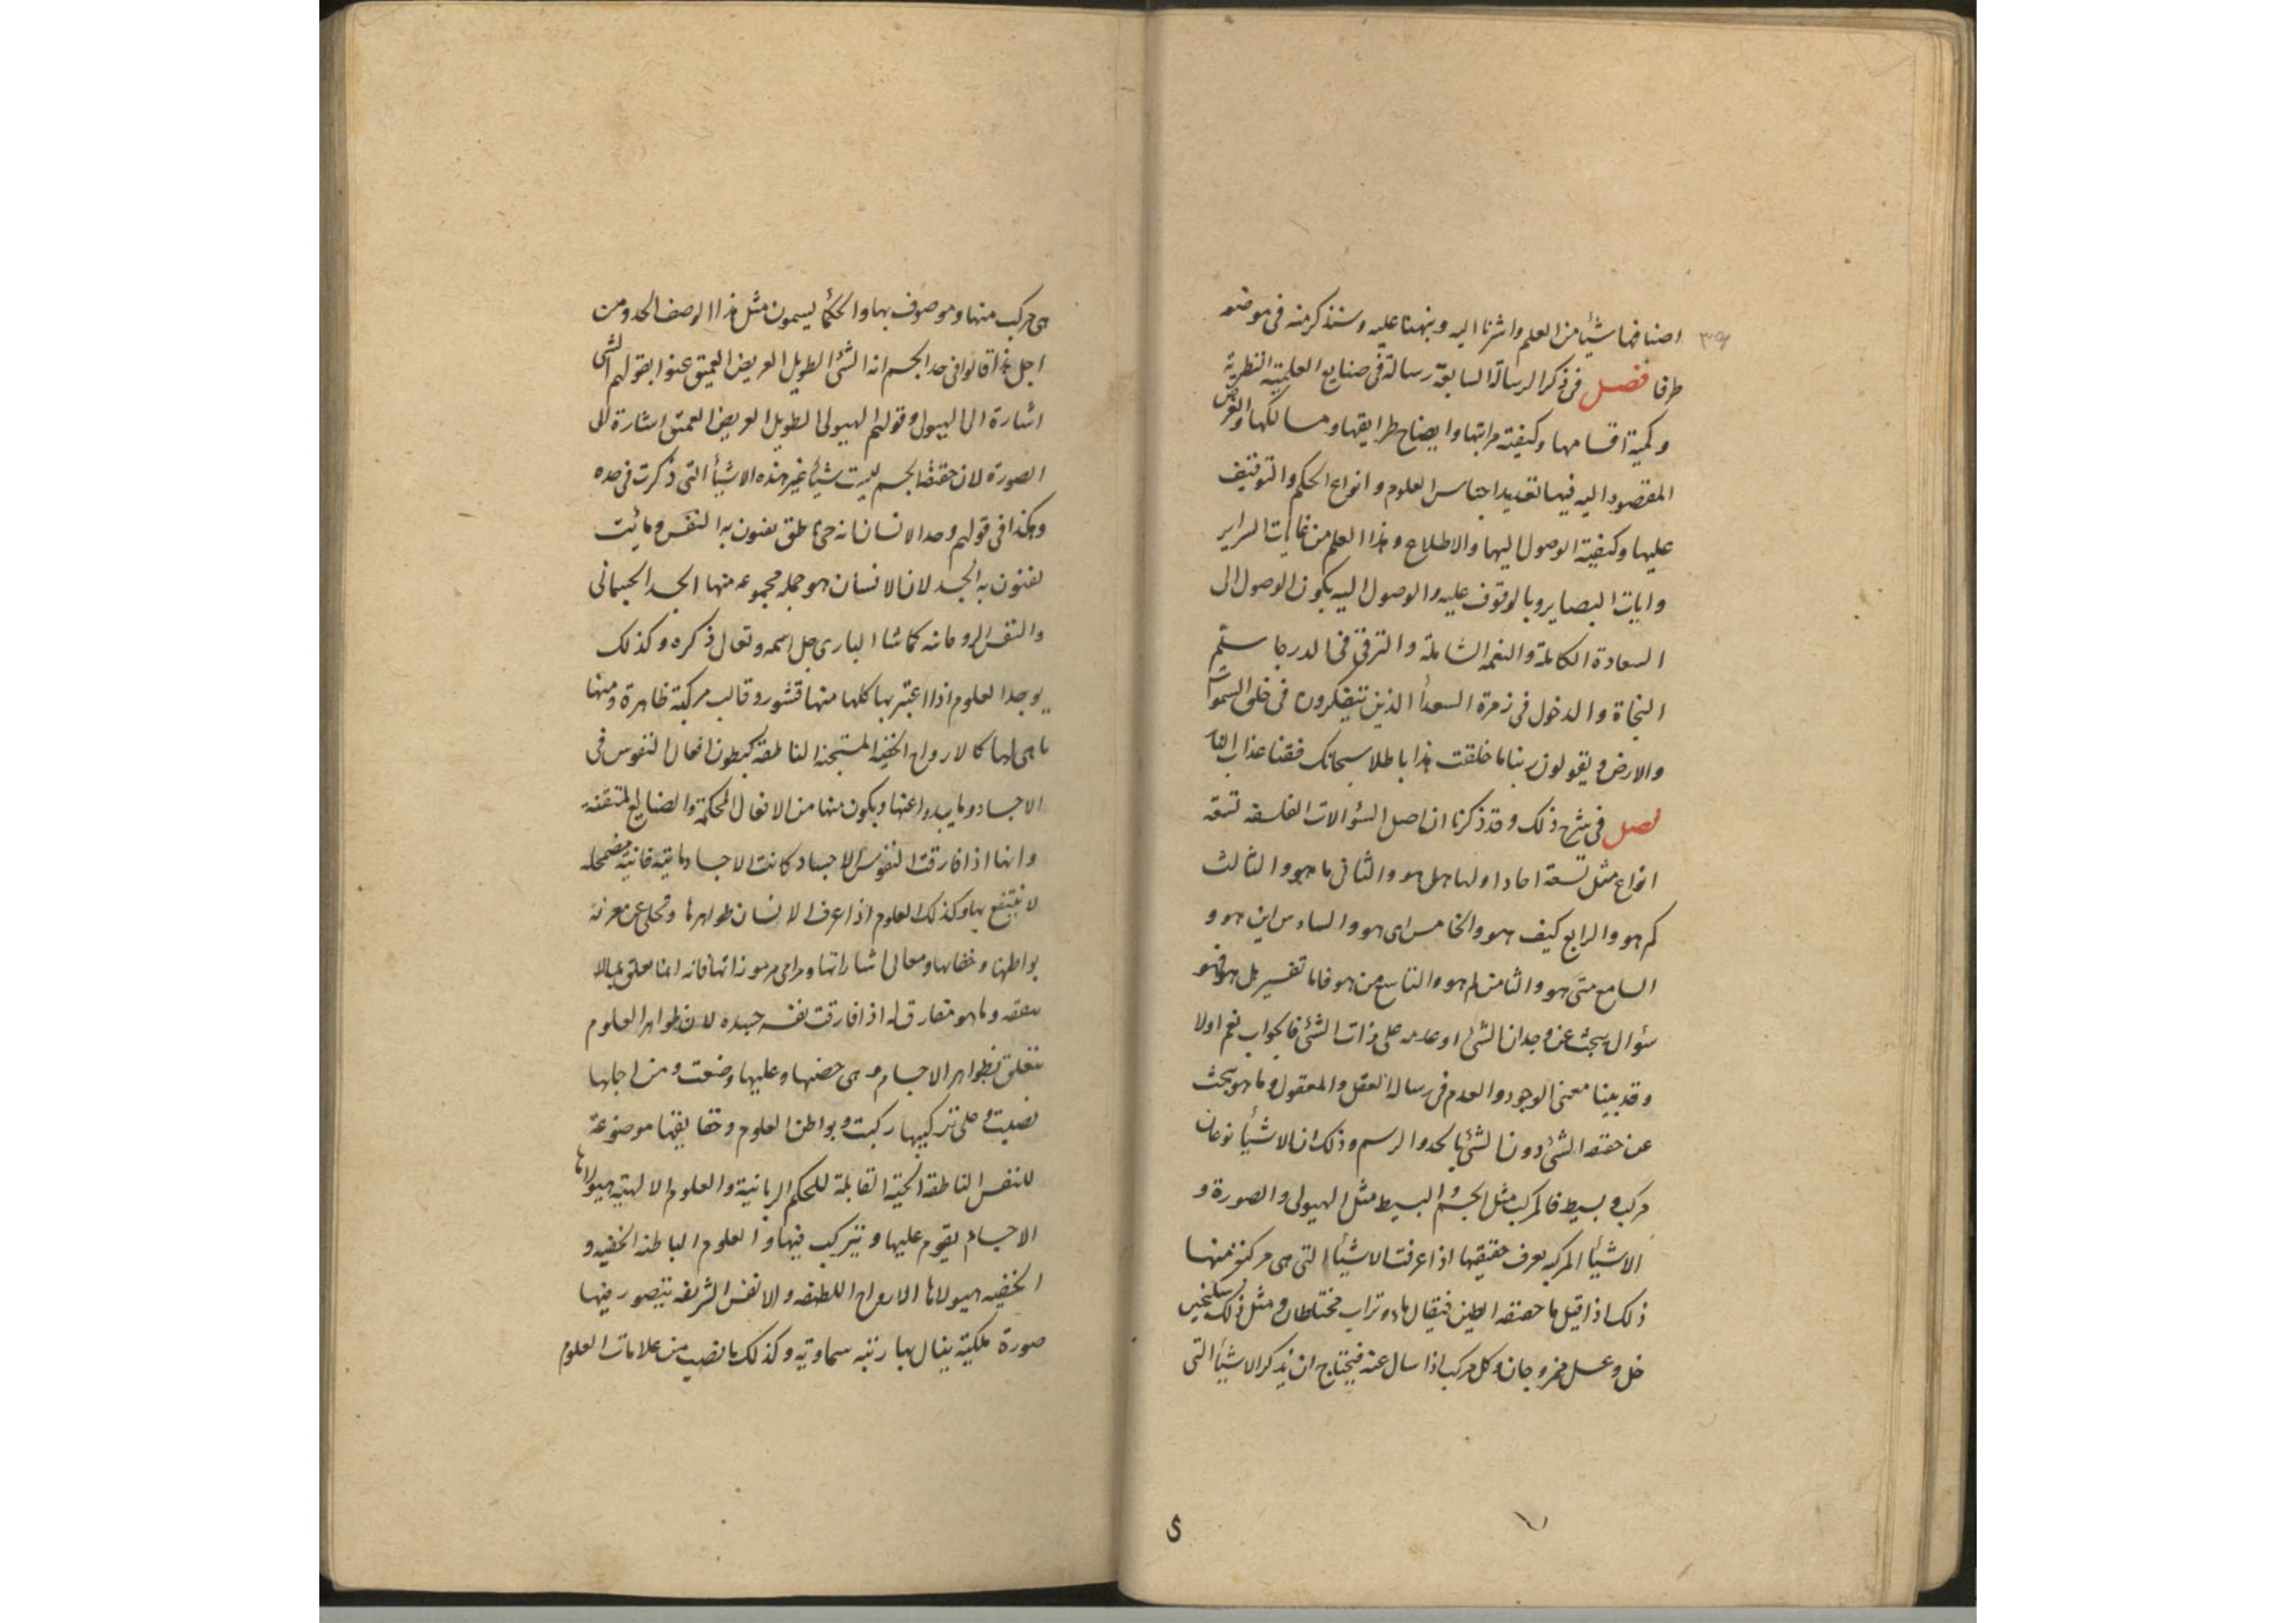 ٣٩
اصنافها شيأ من العلم واشرنا اليه ونبهنا عليه وسنذكر منه فى موضعه
طرفا فصل فى ذكر الرسالة السابعة رسالة فى صنايع العلمية النظرية
وكمية اقسامها وكيفية مراتبها وايضاح طرايقها ومسالكها والغرض
المقصود اليه فيها تعديد اجناس العلوم وانواع الحكم والتوقيف
عليها وكيفية الوصول اليها والاطلاع وهذا العلم من السراير
وايات البصاير وبالوقوف عليه والوصول اليه يكون الوصول الى
السعادة الكاملة والنعمة الشاملة والترقى فى الدرجا سلّم
النجاة والدخول فى زمرة السعدأ الذين يتفكرون فى خلق السموات
والارض ويقولون ربنا ما خلقت هذا باطلا سبحانك فقنا عذاب النار
فصل فى شرح ذلك وقد ذكرنا ان اصل السؤالات الفلسفه تسعة
انواع مثل تسعة احاد اولها هل هو والثانى ما هو والثالث
كم هو والرابع كيف هو والخامس اى هو والسادس اين هو و
السابع متى هو والثامن لم هو والتاسع من هو فاما تفسير هل هو فهو
سؤال يبحث عن وجدان الشئ او عدمه على ذات الشئ فالجواب نعم اولا
وقد بينا معنى الوجود والعدم فى رسالة العقل والمعقول وما هو يبحث
عن حقيقة الشئ دون الشئ بالحد والرسم وذلك ان الاشيأ نوعان
مركب وبسيط فالمركب مثل الجسم والبسيط مثل الهيولى والصورة و
الاشيأ المركبه يعرف حقيقتها اذا عرفت الاشيأ التى هى مركبة منها
ذلك اذا قيل ما حقيقة الطين فيقال ماء وتراب مختلطان ومثل ذلك سكنجبين
خل وعسل ممزوجان وكل مركب اذا سال عنه فيحتاج ان يذكر الاشيأ التى
هى مركب منها وموصوف بها والحكمأ يسمون مثل هذا الوصف الحد ومن
اجل هذا قالوا فى حد الجسم انه الشئ الطويل العريض العميق عنوا بقولهم الشى
اشارة الى الهيولى وقولهم الهيولى الطويل العريض العميق اشارة الى
الصورة لان حقيقة الجسم ليست شيأ غير هذه الاشيأ التى ذكرت فى حده
وهكذا فى قولهم وحد الانسان انه حى ناطق يعنون به النفس ومائت
يعنون به الجسد لان الانسان هو جملة مجموعه منها الجسد الجسمانى
والنفس الروحانيه كما شا البارى جل اسمه وتعالى ذكره وكذلك
يوجد العلوم اذا اعتبر بها كلها منها قشور وقالب مركبة ظاهرة ومنها
ما هى لها كالارواح الخفية المستجنة الناطقة كبطون افعال النفوس فى
الاجساد وما يبدوا عنها ويكون منها من الافعال المحكمة والصنايع المتقنة
وانها اذا فارقت النفوس الاجساد كانت الاجساد فانية مضمحله
لا ينتفع بها وكذلك العلوم اذا عرف الانسان ظواهرها وتخلى عن معرفة
بواطنها وخفاياها ومعانى اشاراتها ومرامى مرموزاتها فانه انما تعلق بما لا
ينفعه وما هو مفارق له اذا فارقت نفسه جسده لان ظواهر العلوم
تتعلق بظواهر الاجسام وهى وعليها وضعت ومن اجلها
نصبت وعلى تركيبها ركبت وبواطن العلوم وحقايقها موضوعة
للنفس الناطقة الحية القابلة للحكم الربانية والعلوم الالهية هيولاها
الاجسام يقوم عليها ويتركب فيها والعلوم الباطنه الخفيه و
الخفيه هيولاها الارواح اللطيفه والانفس الشريفه يتصور فيها
صورة ملكية ينال بها رتبه سماوية وكذلك ما نصب من علامات العلوم